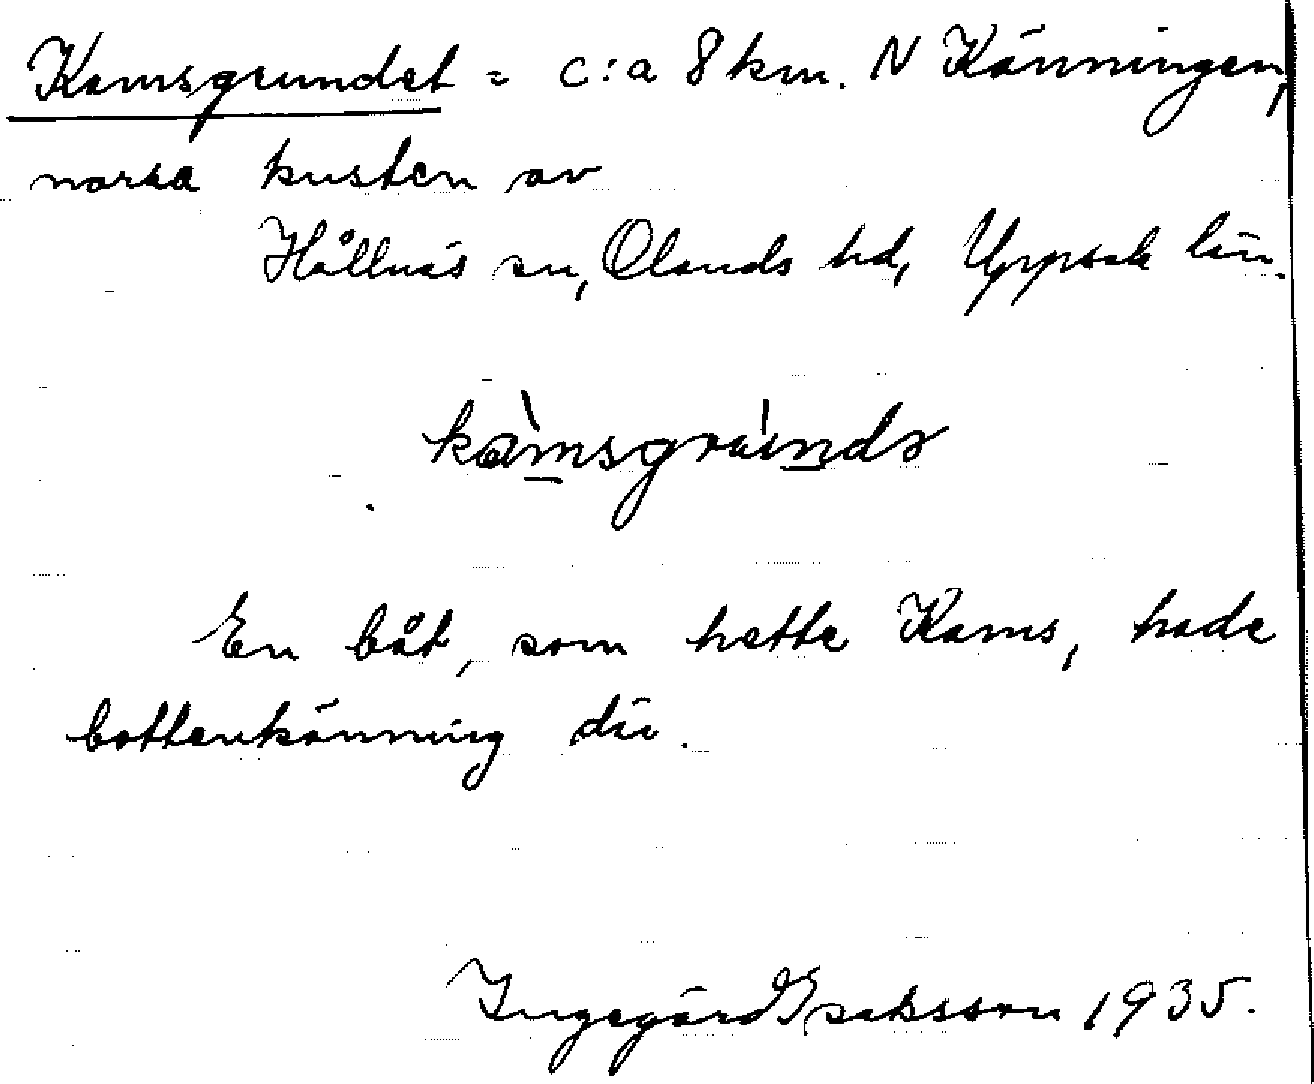 Kamsgrundet = c:a 8 km. N Känningen,
norra kusten av
Hållnäs sn, Olands hd, Uppsala län.
kàmsgru̍ndə
En båt, som hette Kams, hade
bottenkänning där.
Ingegärd Isaksson 1935.